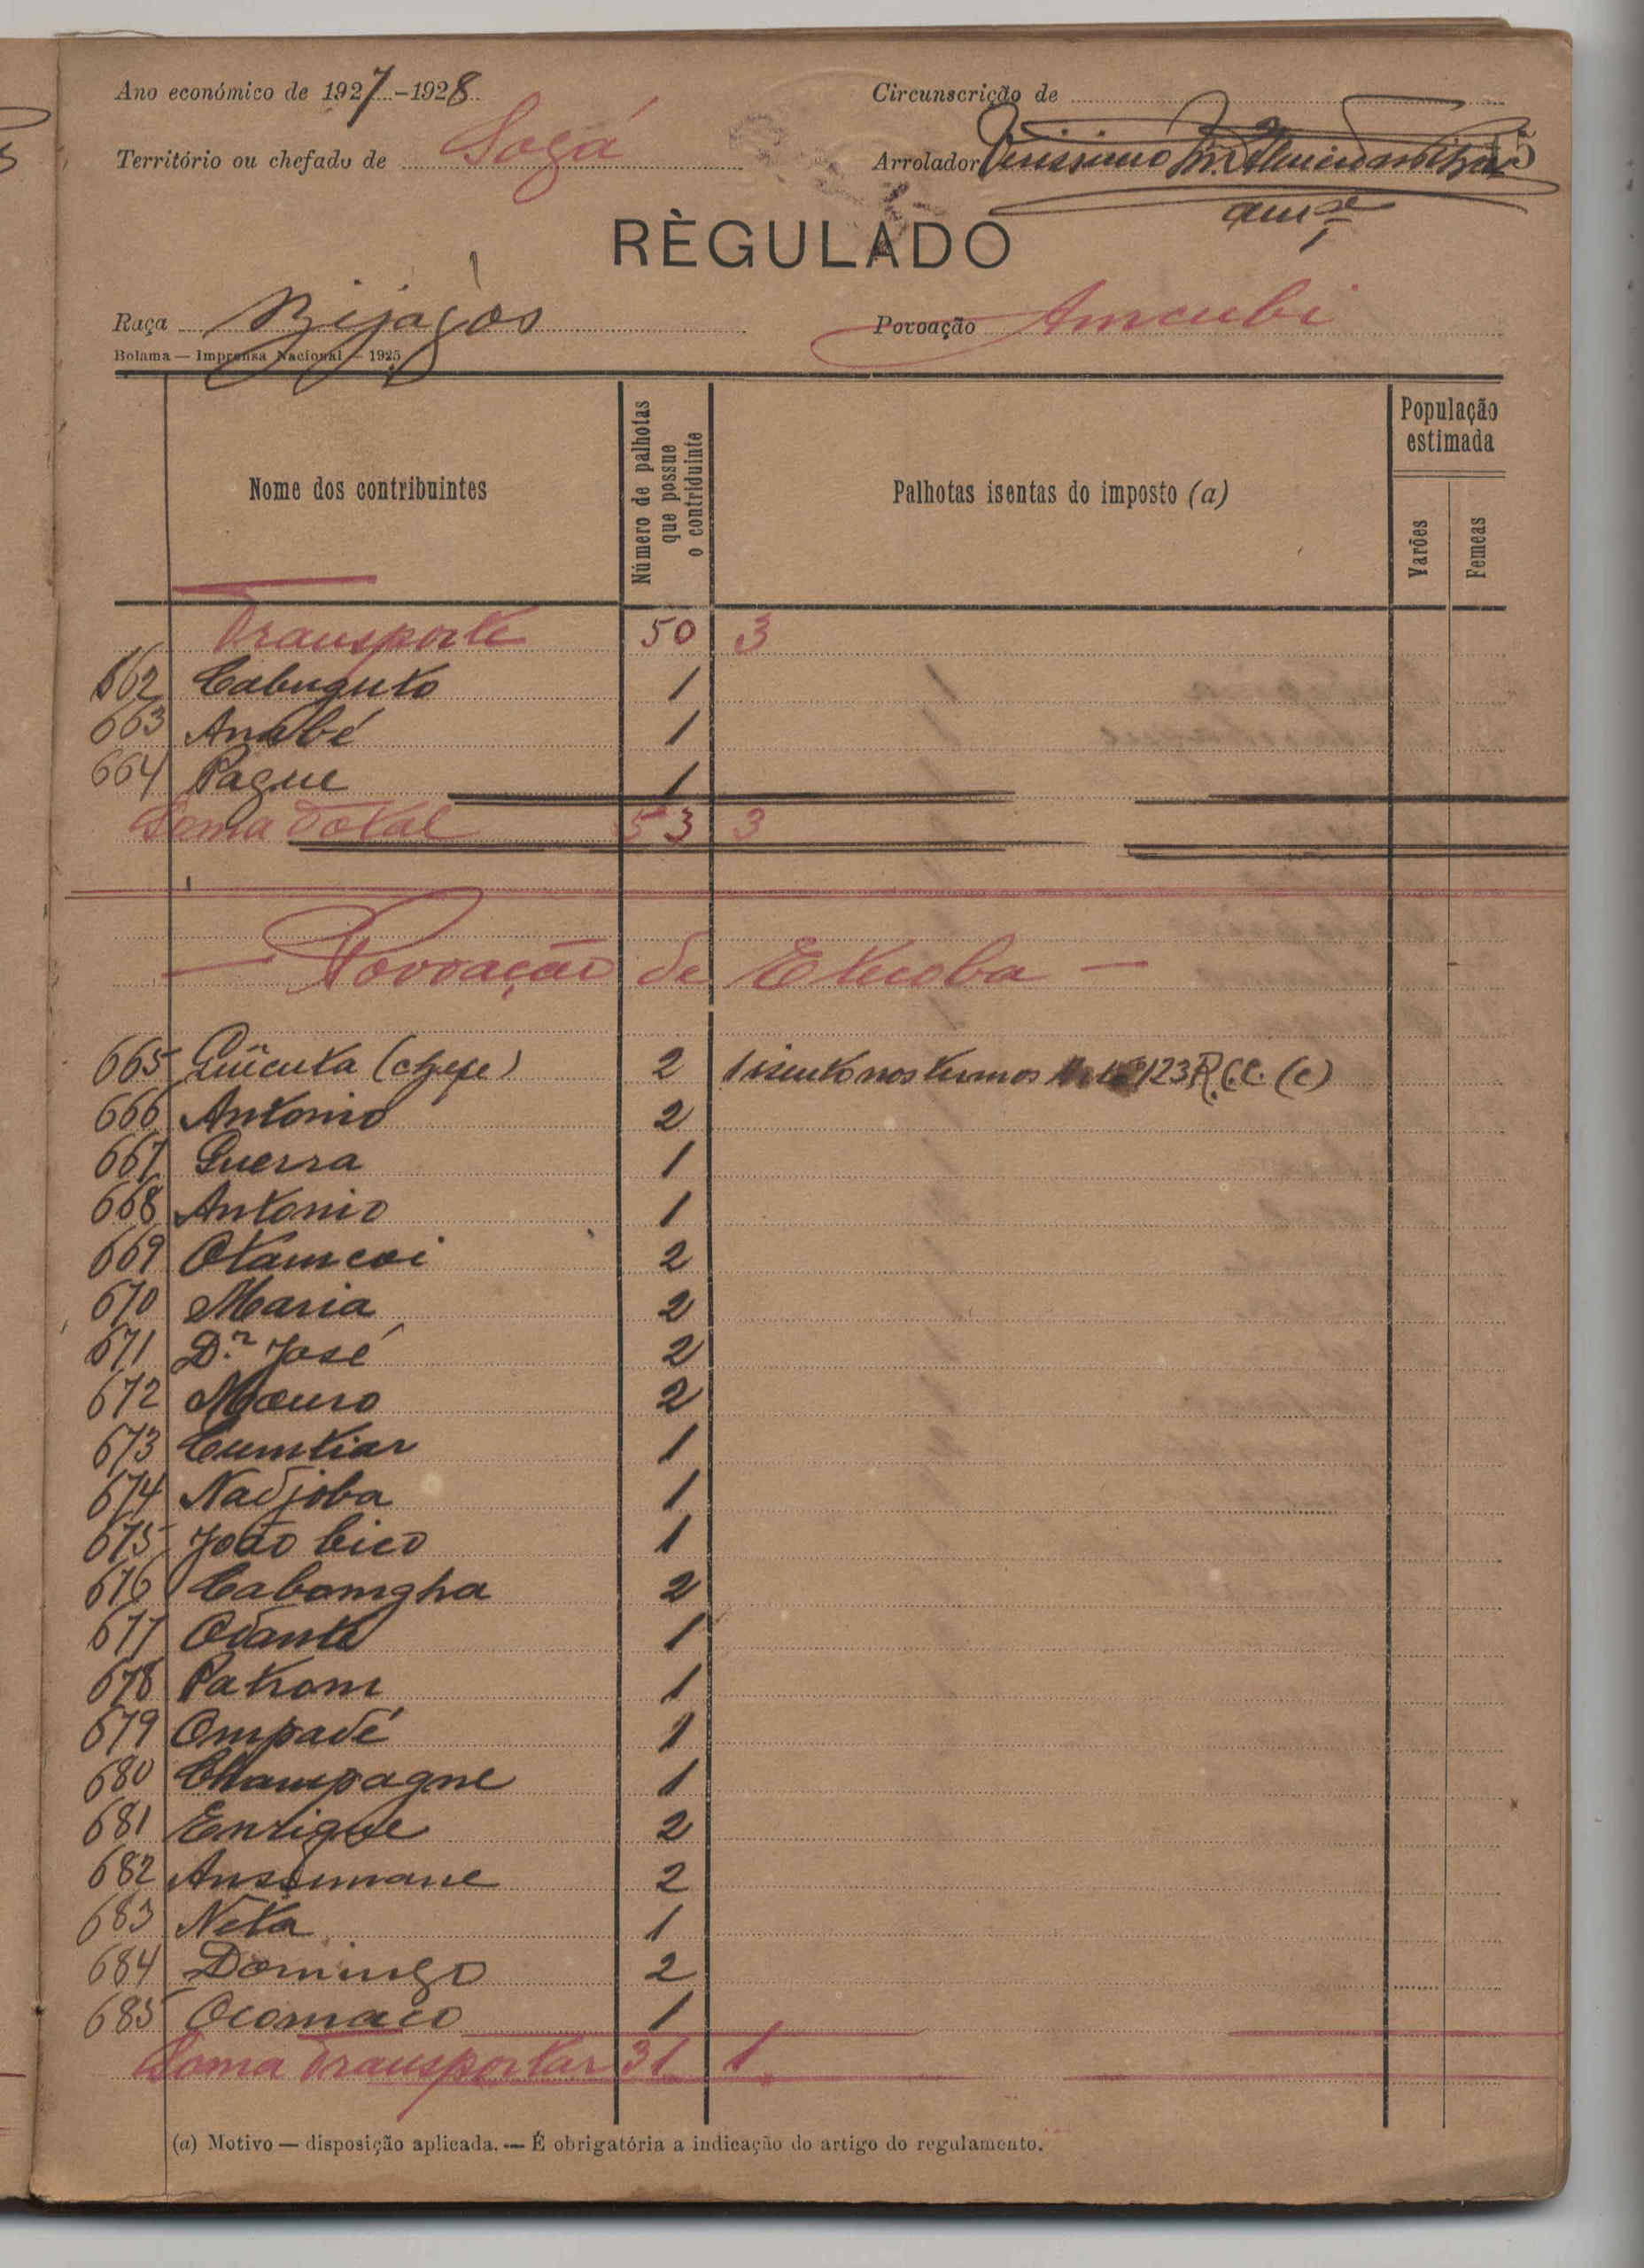 Ano económico de 1927-1928
Circunscrição de
Território ou chefado de Sogá
Arrolador
15
RÈGULADO
Raça Bijagós
Povoação Amcubi
Bolama — Imprensa Nacional — 1925
Nome dos contribuintes
Número de palhotas que possue o contriduinte
Palhotas isentas do imposto (a)
População estimada
Varões
Femeas
Transporte 50 3
662 Cabuguto 1
663 Anabé 1
664 Pague 1
Soma Total 53 3
Povoação de Etucoba
665 (chefe) 2 1 isento nos termos 123 R.C.C. (c)
666 Antonio 2
667 Guerra 1
668 Antonio 1
669 Otamcoi 2
670 Maria 2
671 D.n José 2
672 Mouro 2
673 Cumtiar 1
674 Nadjoba 1
675 João bico 1
676 Cabomgha 2
677 Odante 1
678 Patrom 1
679 Ompadé 1
680 Champagne 1
681 Enrique 2
682 Anssumane 2
683 Neta 1
684 Domingo 2
685 Ocomaco 1
Soma Transportar 31 1
(a) Motivo — disposição aplicada. — É obrigatória a indicação do artigo do regulamento.